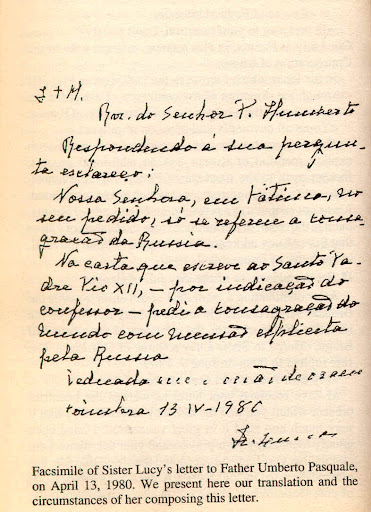 J + M.
Rev. do Senhor P. Humberto
Respondendo á sua pergun-
ta esclareço:
Nossa Senhora, em Fátima, no
seu pedido, só se referem a consa-
gração da Russia.
Na carta que escreve ao Santo Pa-
dre Pio XII, – por indicação do
confessor – pedi a consagração do
mundo com mensão esplicita
pela Russia
Dedicada
Coimbra 13 IV-1980
Facsimile of Sister Lucy's letter to Father Umberto Pasquale,
on April 13, 1980. We present here our translation and the
circumstances of her composing this letter.